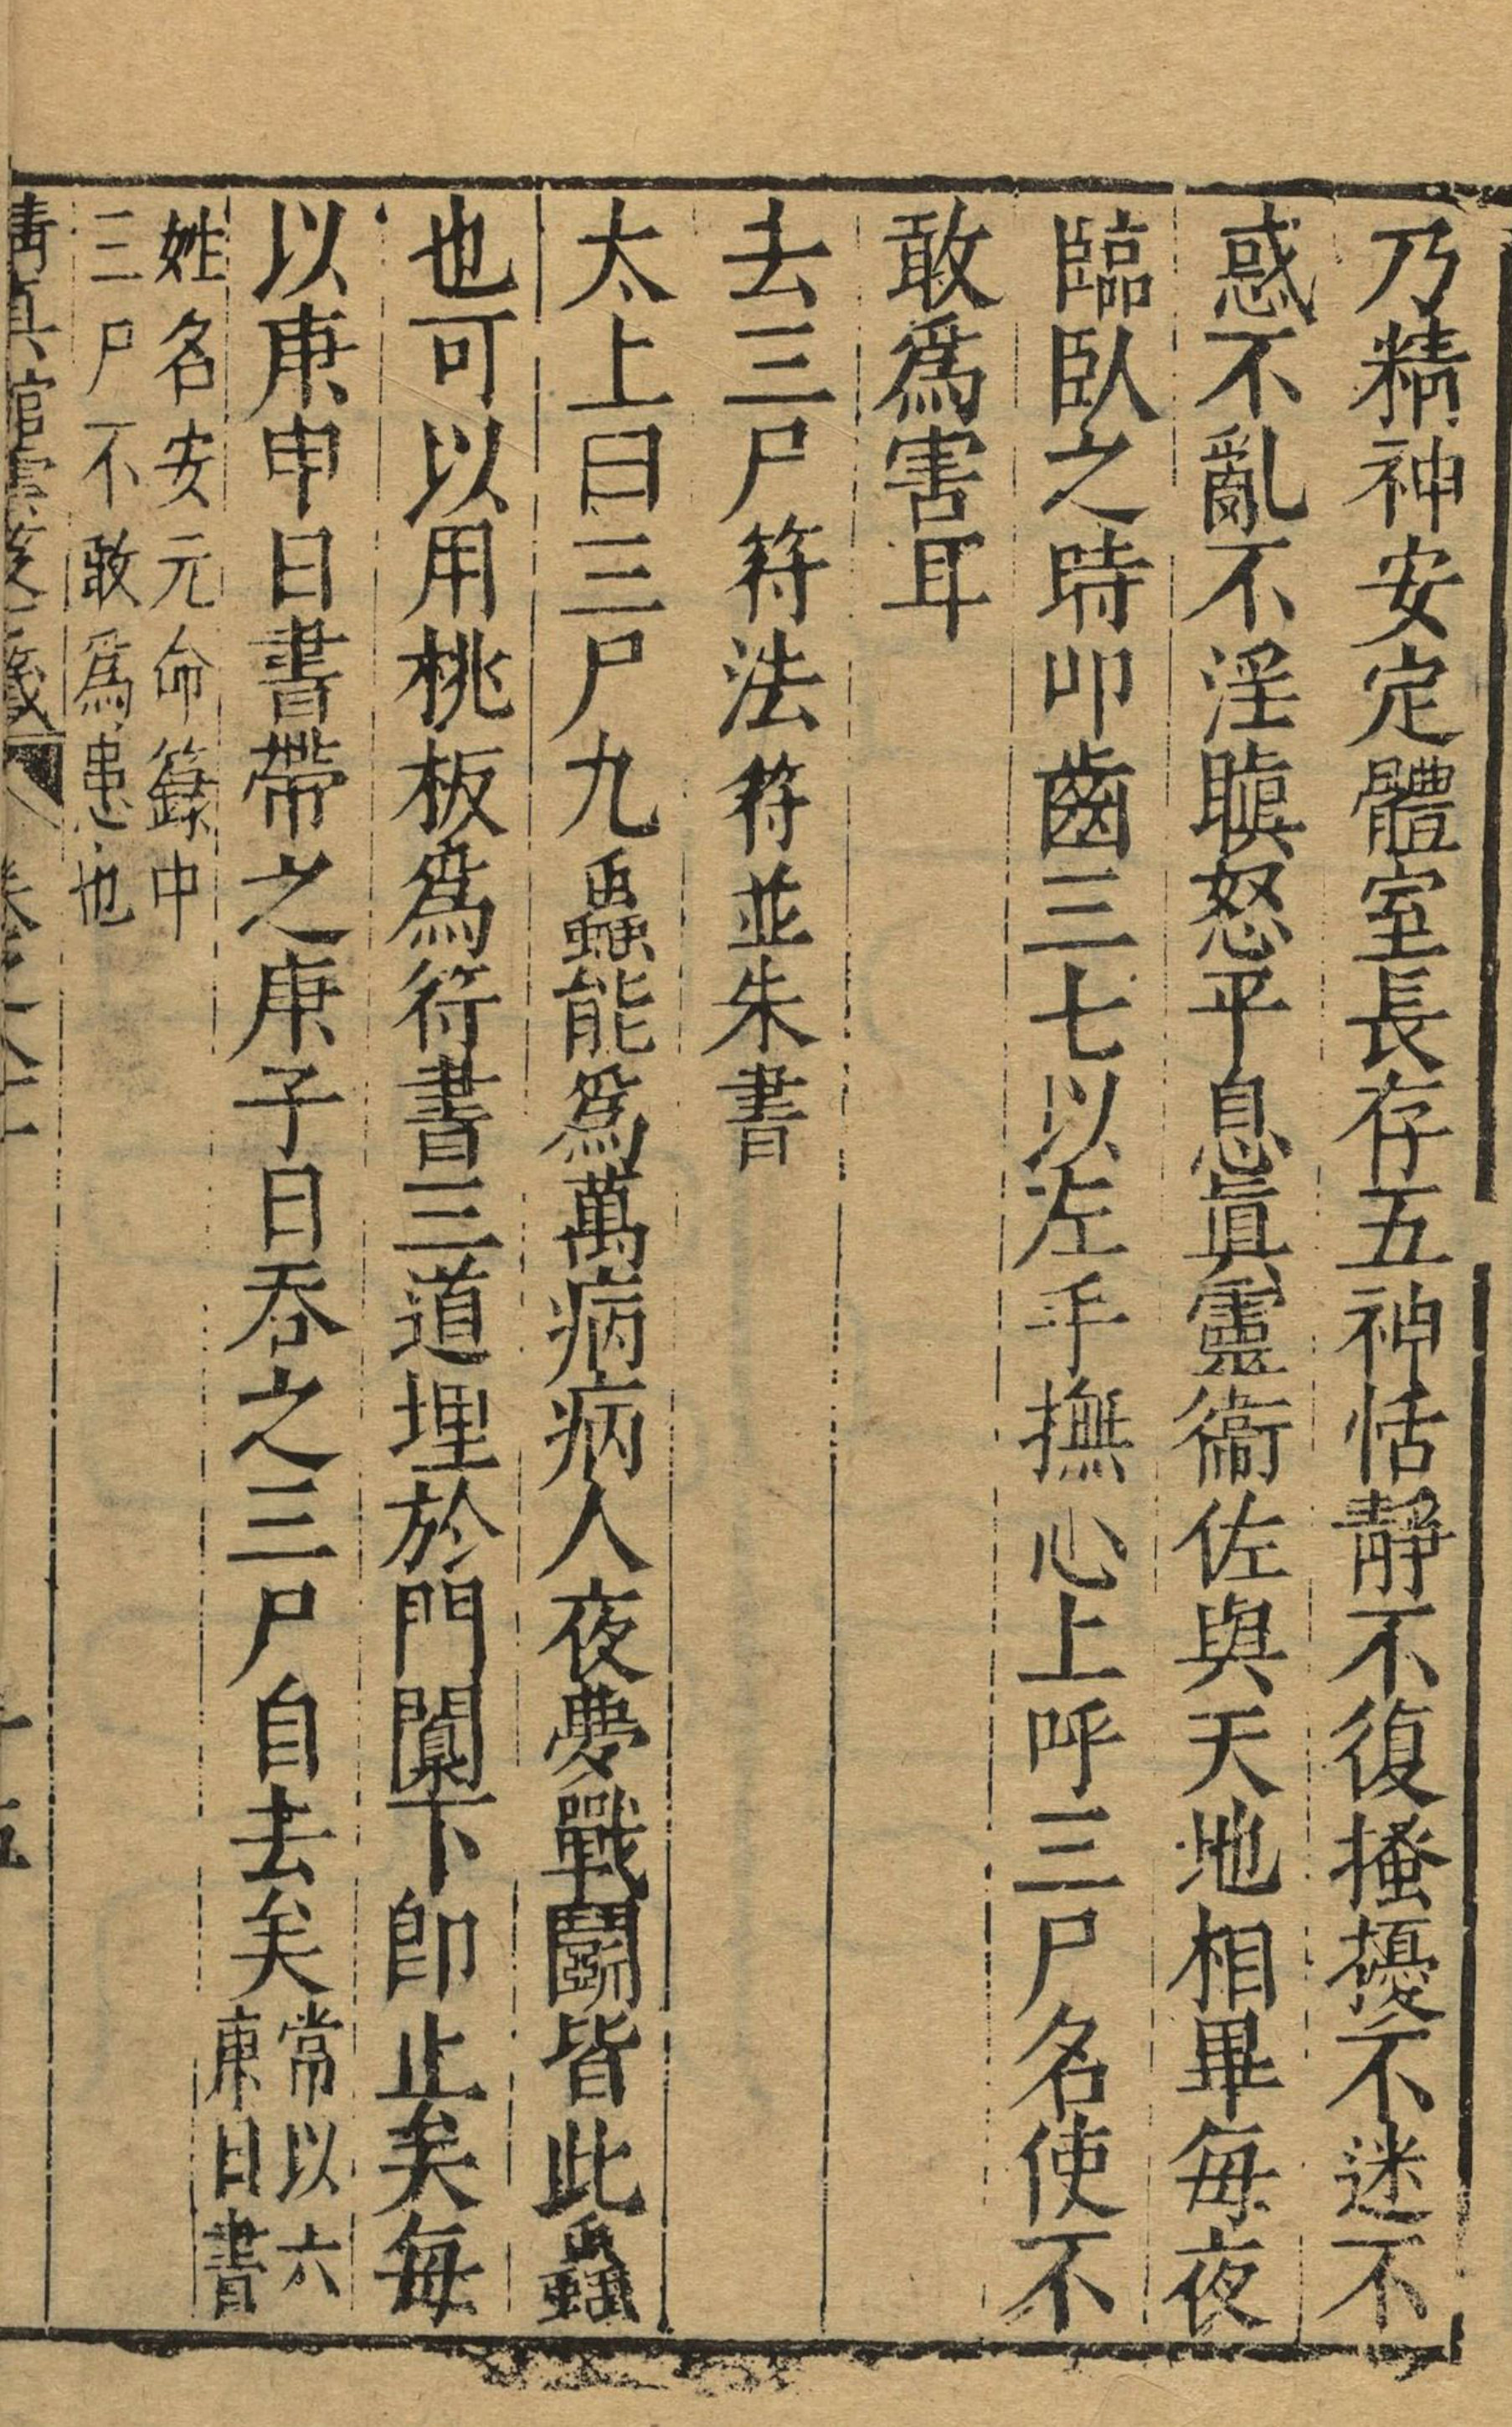 乃精神安定體室長存五神恬靜不復搔擾不迷不
惑不亂不淫瞋怒平息眞靈衞佐與天地相畢每夜
臨臥之時叩齒三七以左手撫心上呼三尸名使不
敢爲害耳
去三尸符法符並朱書
太上曰三尸九蟲能爲萬病病人夜夢戰鬭皆此蟲
也可以用桃板爲符書三道埋於門闑下卽止矣每
以庚申日書帶之庚子日吞之三尸自去矣
常以六
庚日書
姓名安元命籙中
三尸不敢爲患也
清真館雲笈七籤 卷之八十二
十五